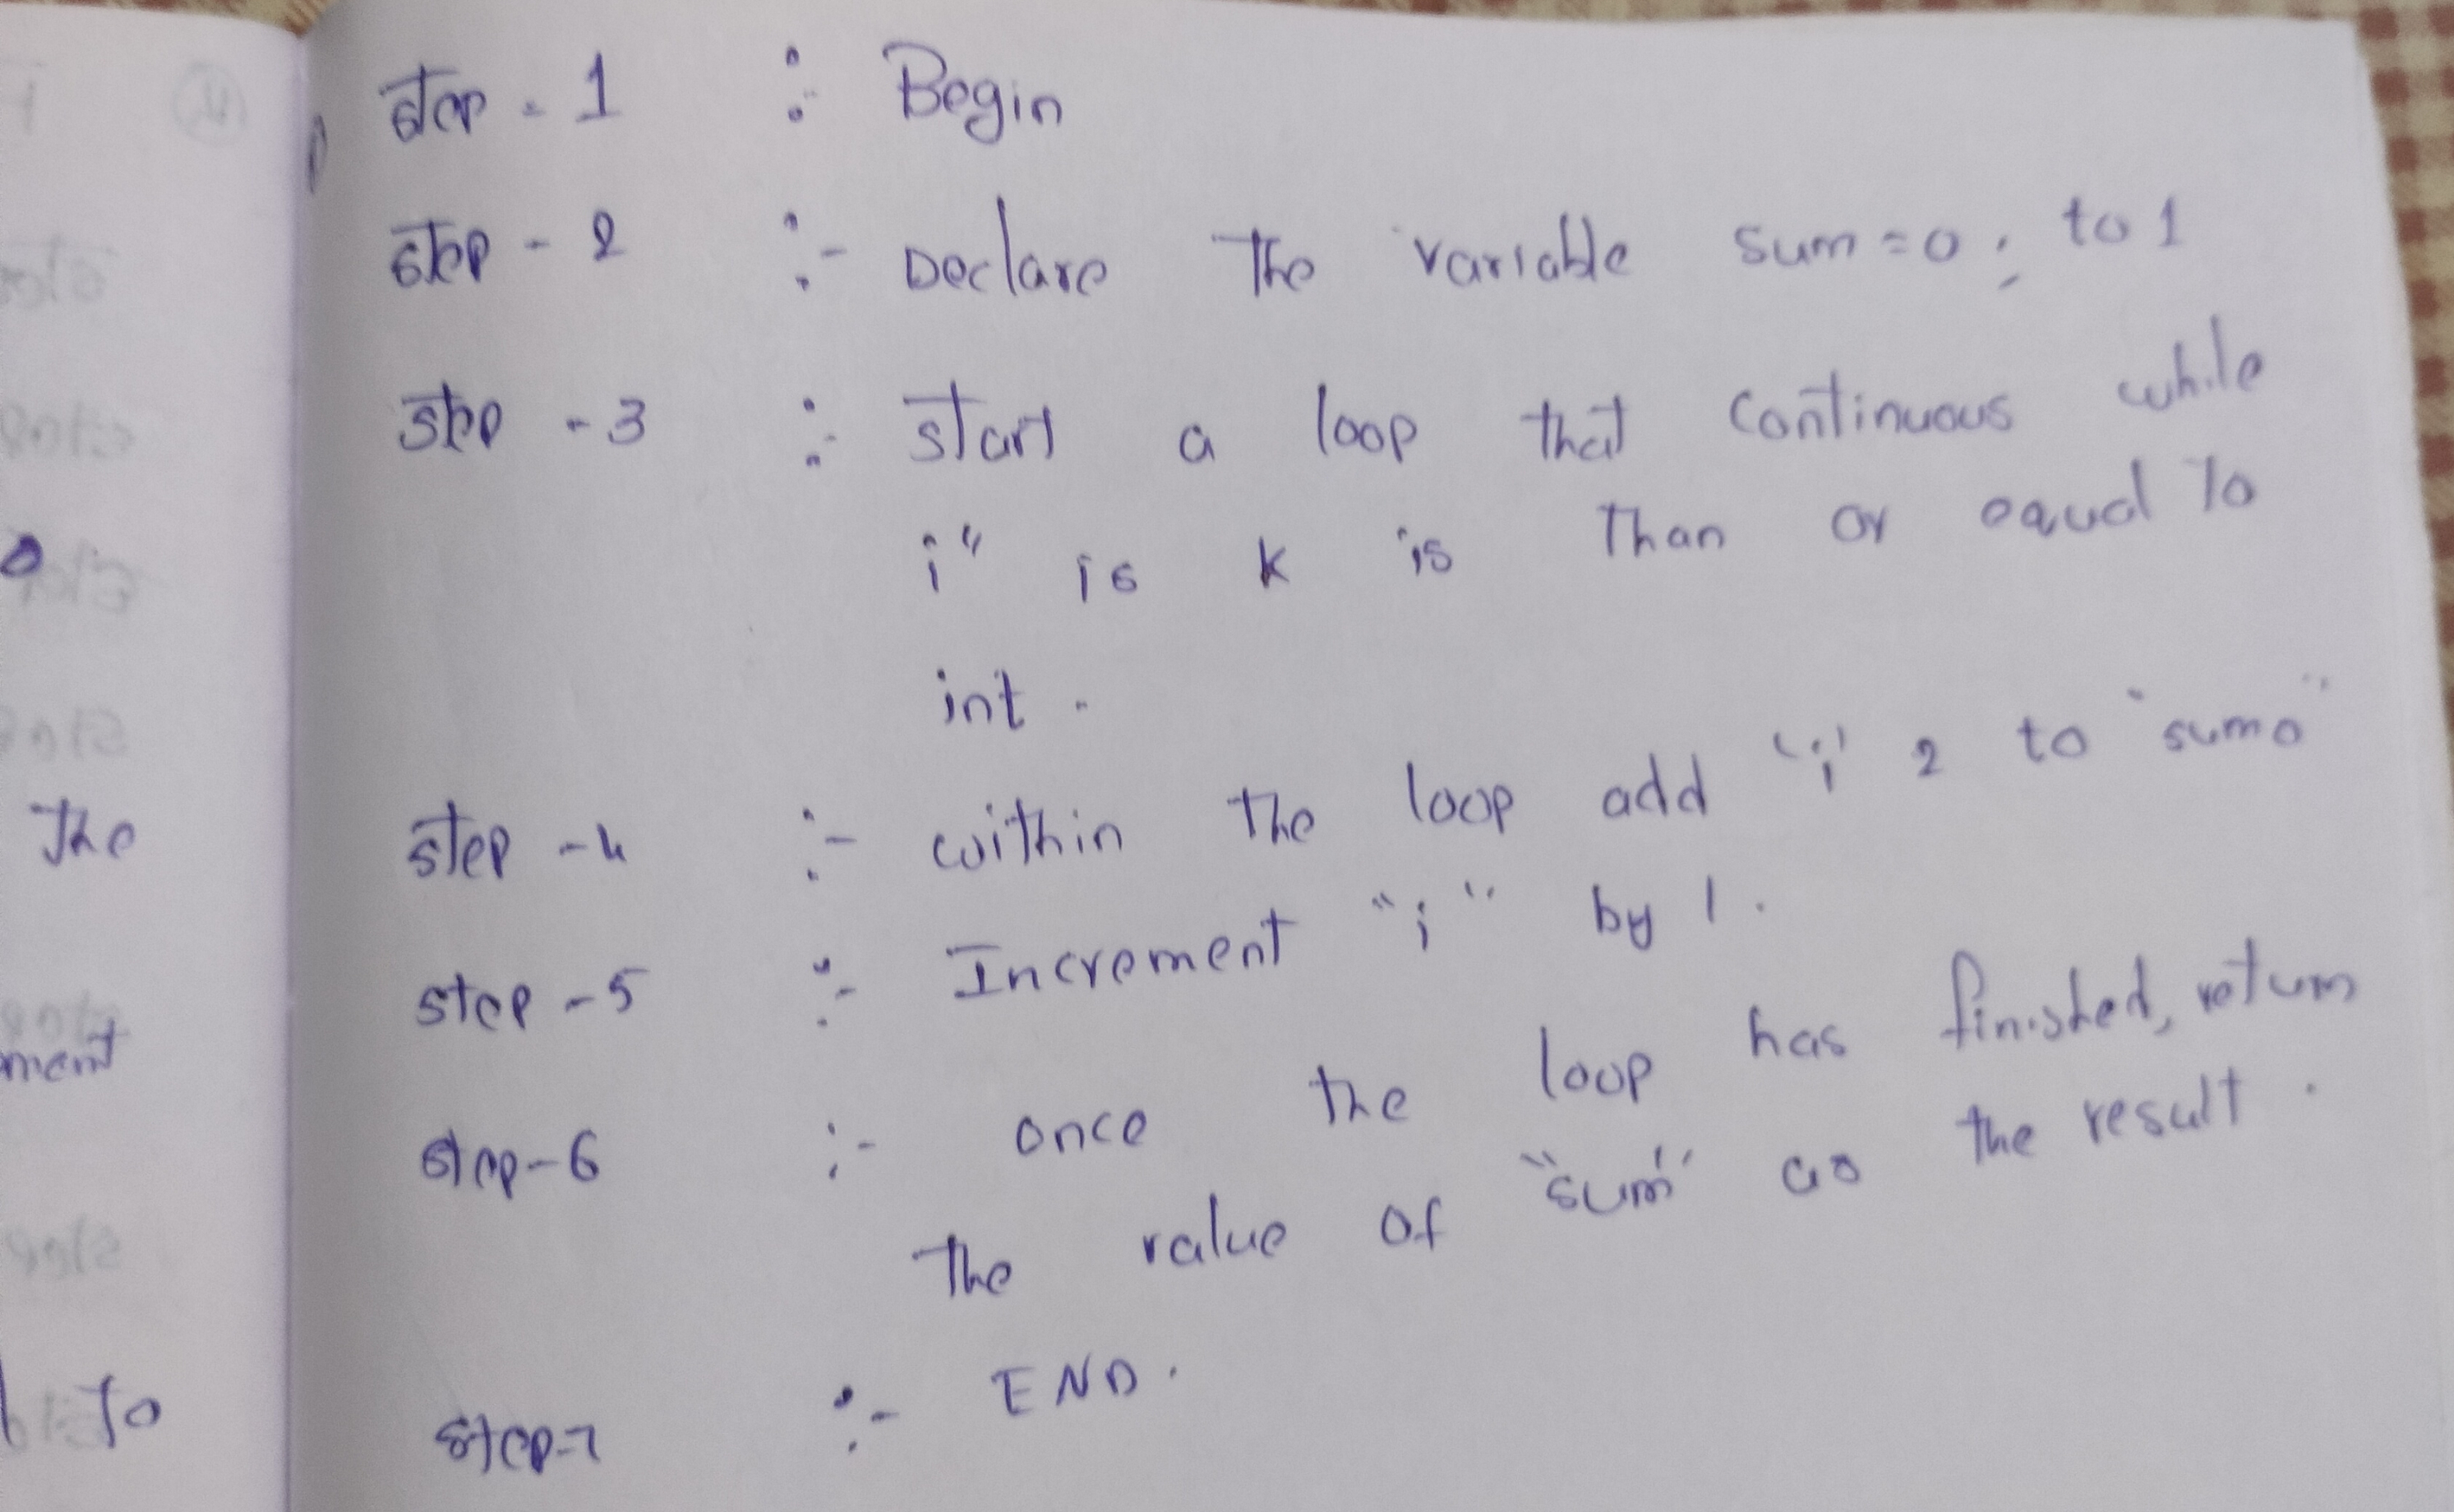 step - 1 :- Begin
step - 2 :- Declare The variable sum = 0 ; to 1
step - 3 :- start a loop that continuous while
i" is k is Than or equal To
int .
step - 4 :- within The loop add 'i' 2 to "sumo"
step - 5 :- Increment "i" by 1 .
step - 6 :- once the loop has finished, return
The value of "sum" as the result .
step - 7 :- END .
The
ment
To